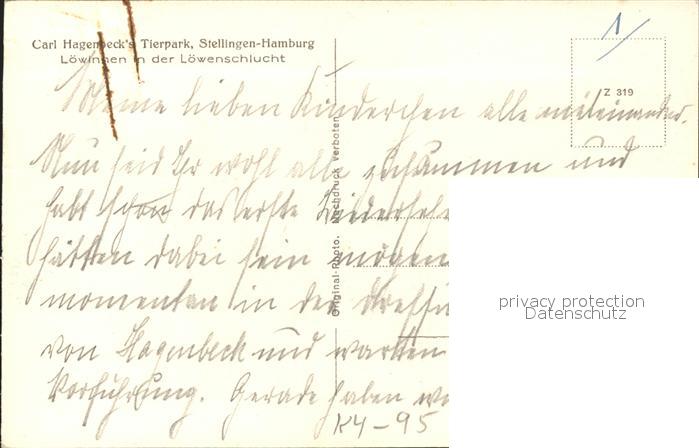 Carl Hagenbeck's Tierpark, Stellingen-Hamburg
Löwinnen in der Löwenschlucht
Z 319
Original-Photo. Nachdruck verboten
Meine lieben Kinderchen alle miteinander.
Nun seid Ihr wohl alle zusammen und
habt schon das erste
hätten dabei sein mögen
momentan in der
von Hagenbeck und warten
Vorführung. Gerade haben
K4-95
privacy protection
Datenschutz